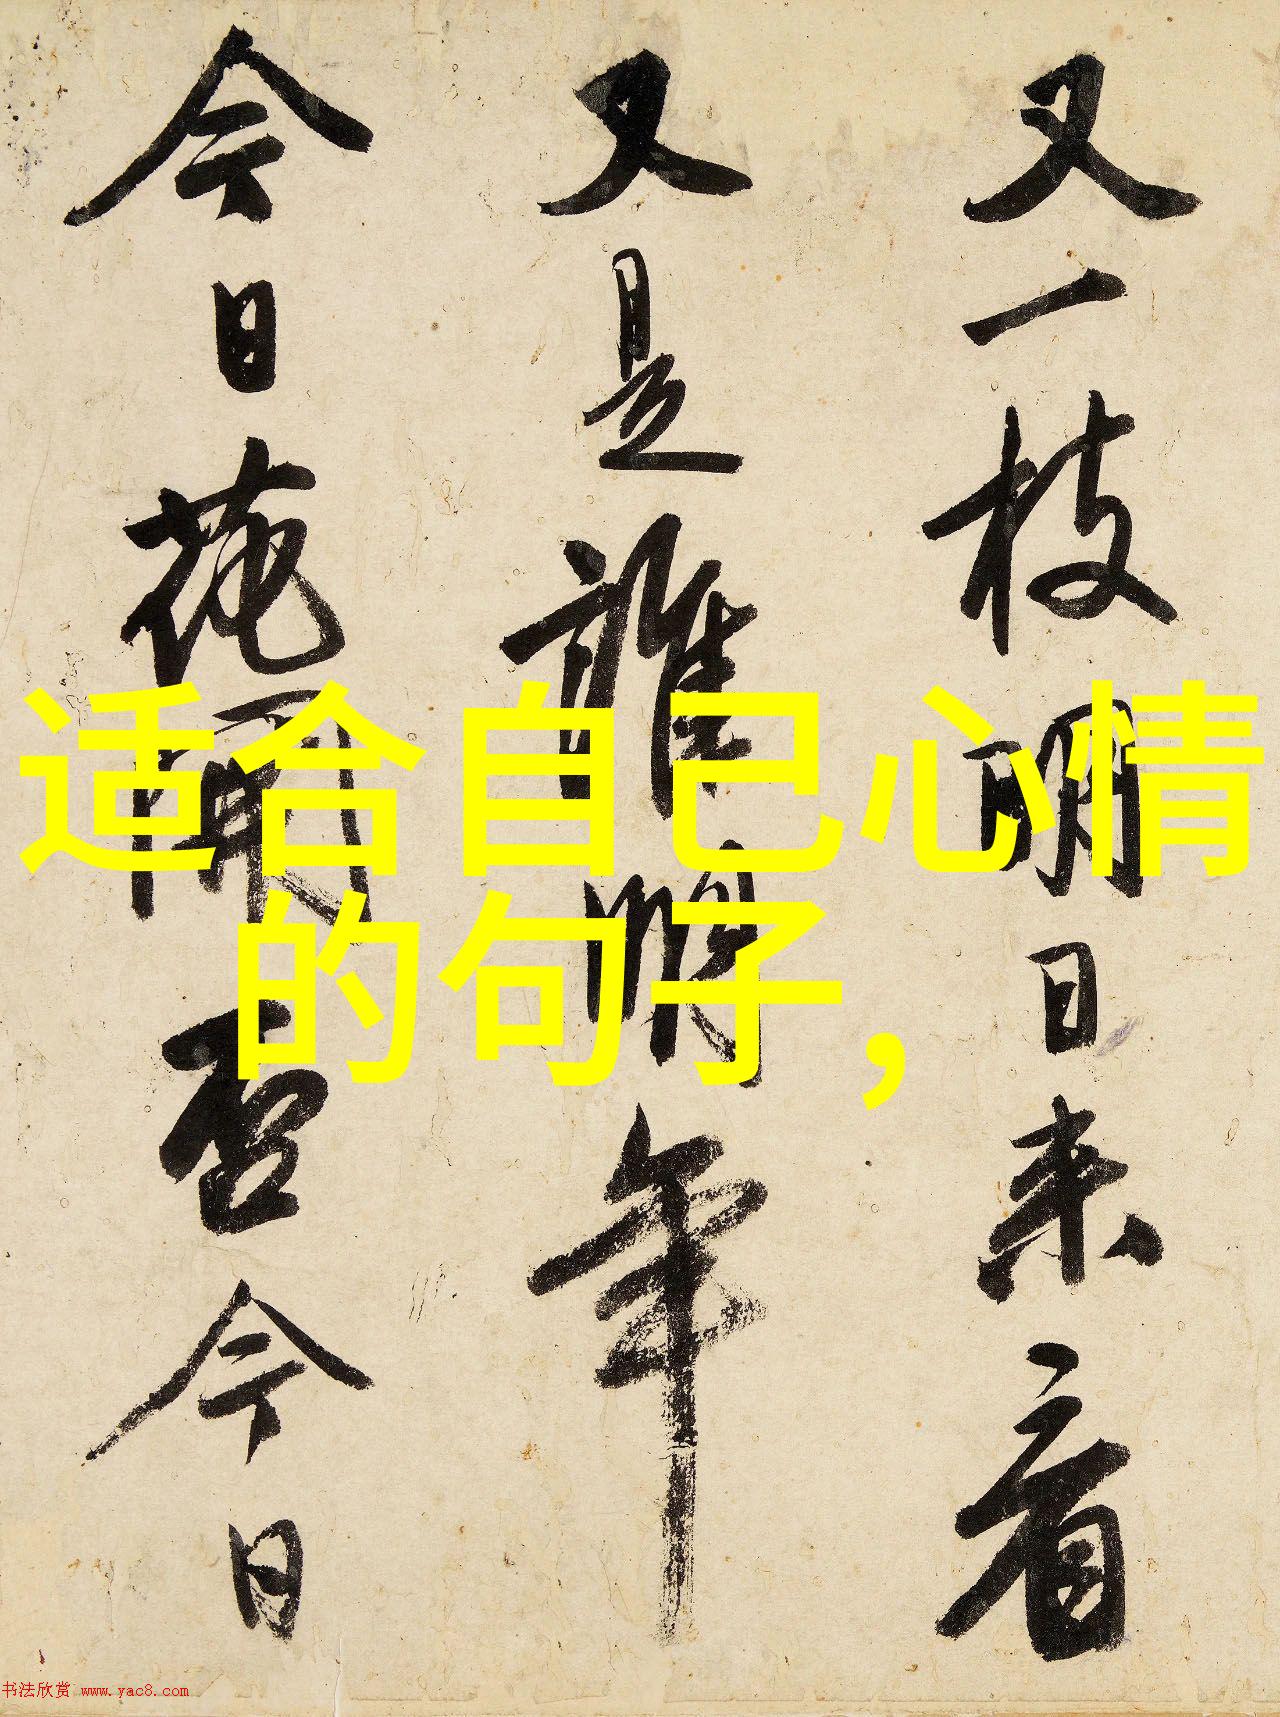 又一枝明日来看
又是誰明年
今日花開否今日
适合自己心情
的句子，
书法欣赏 www.yac8.com